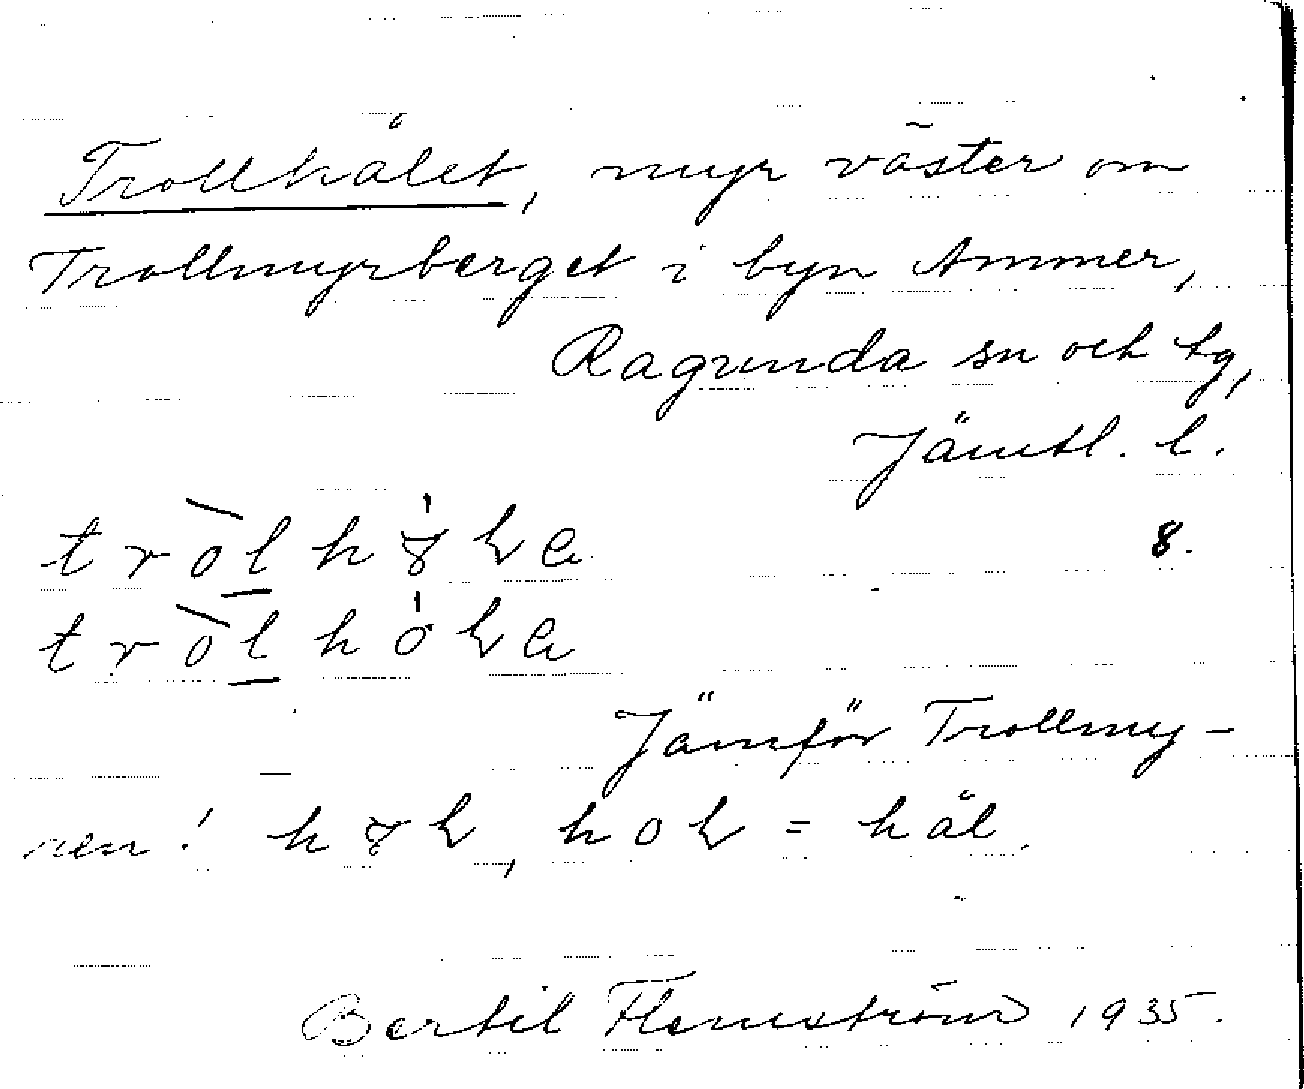 Trollhålet, myr väster om
Trollmyrberget i byn Ammer,
Ragunda sn och tg,
Jämtl. l.
8.
Jämför Trollmy-
ren! = hål.
Bertil Flemström 1935.